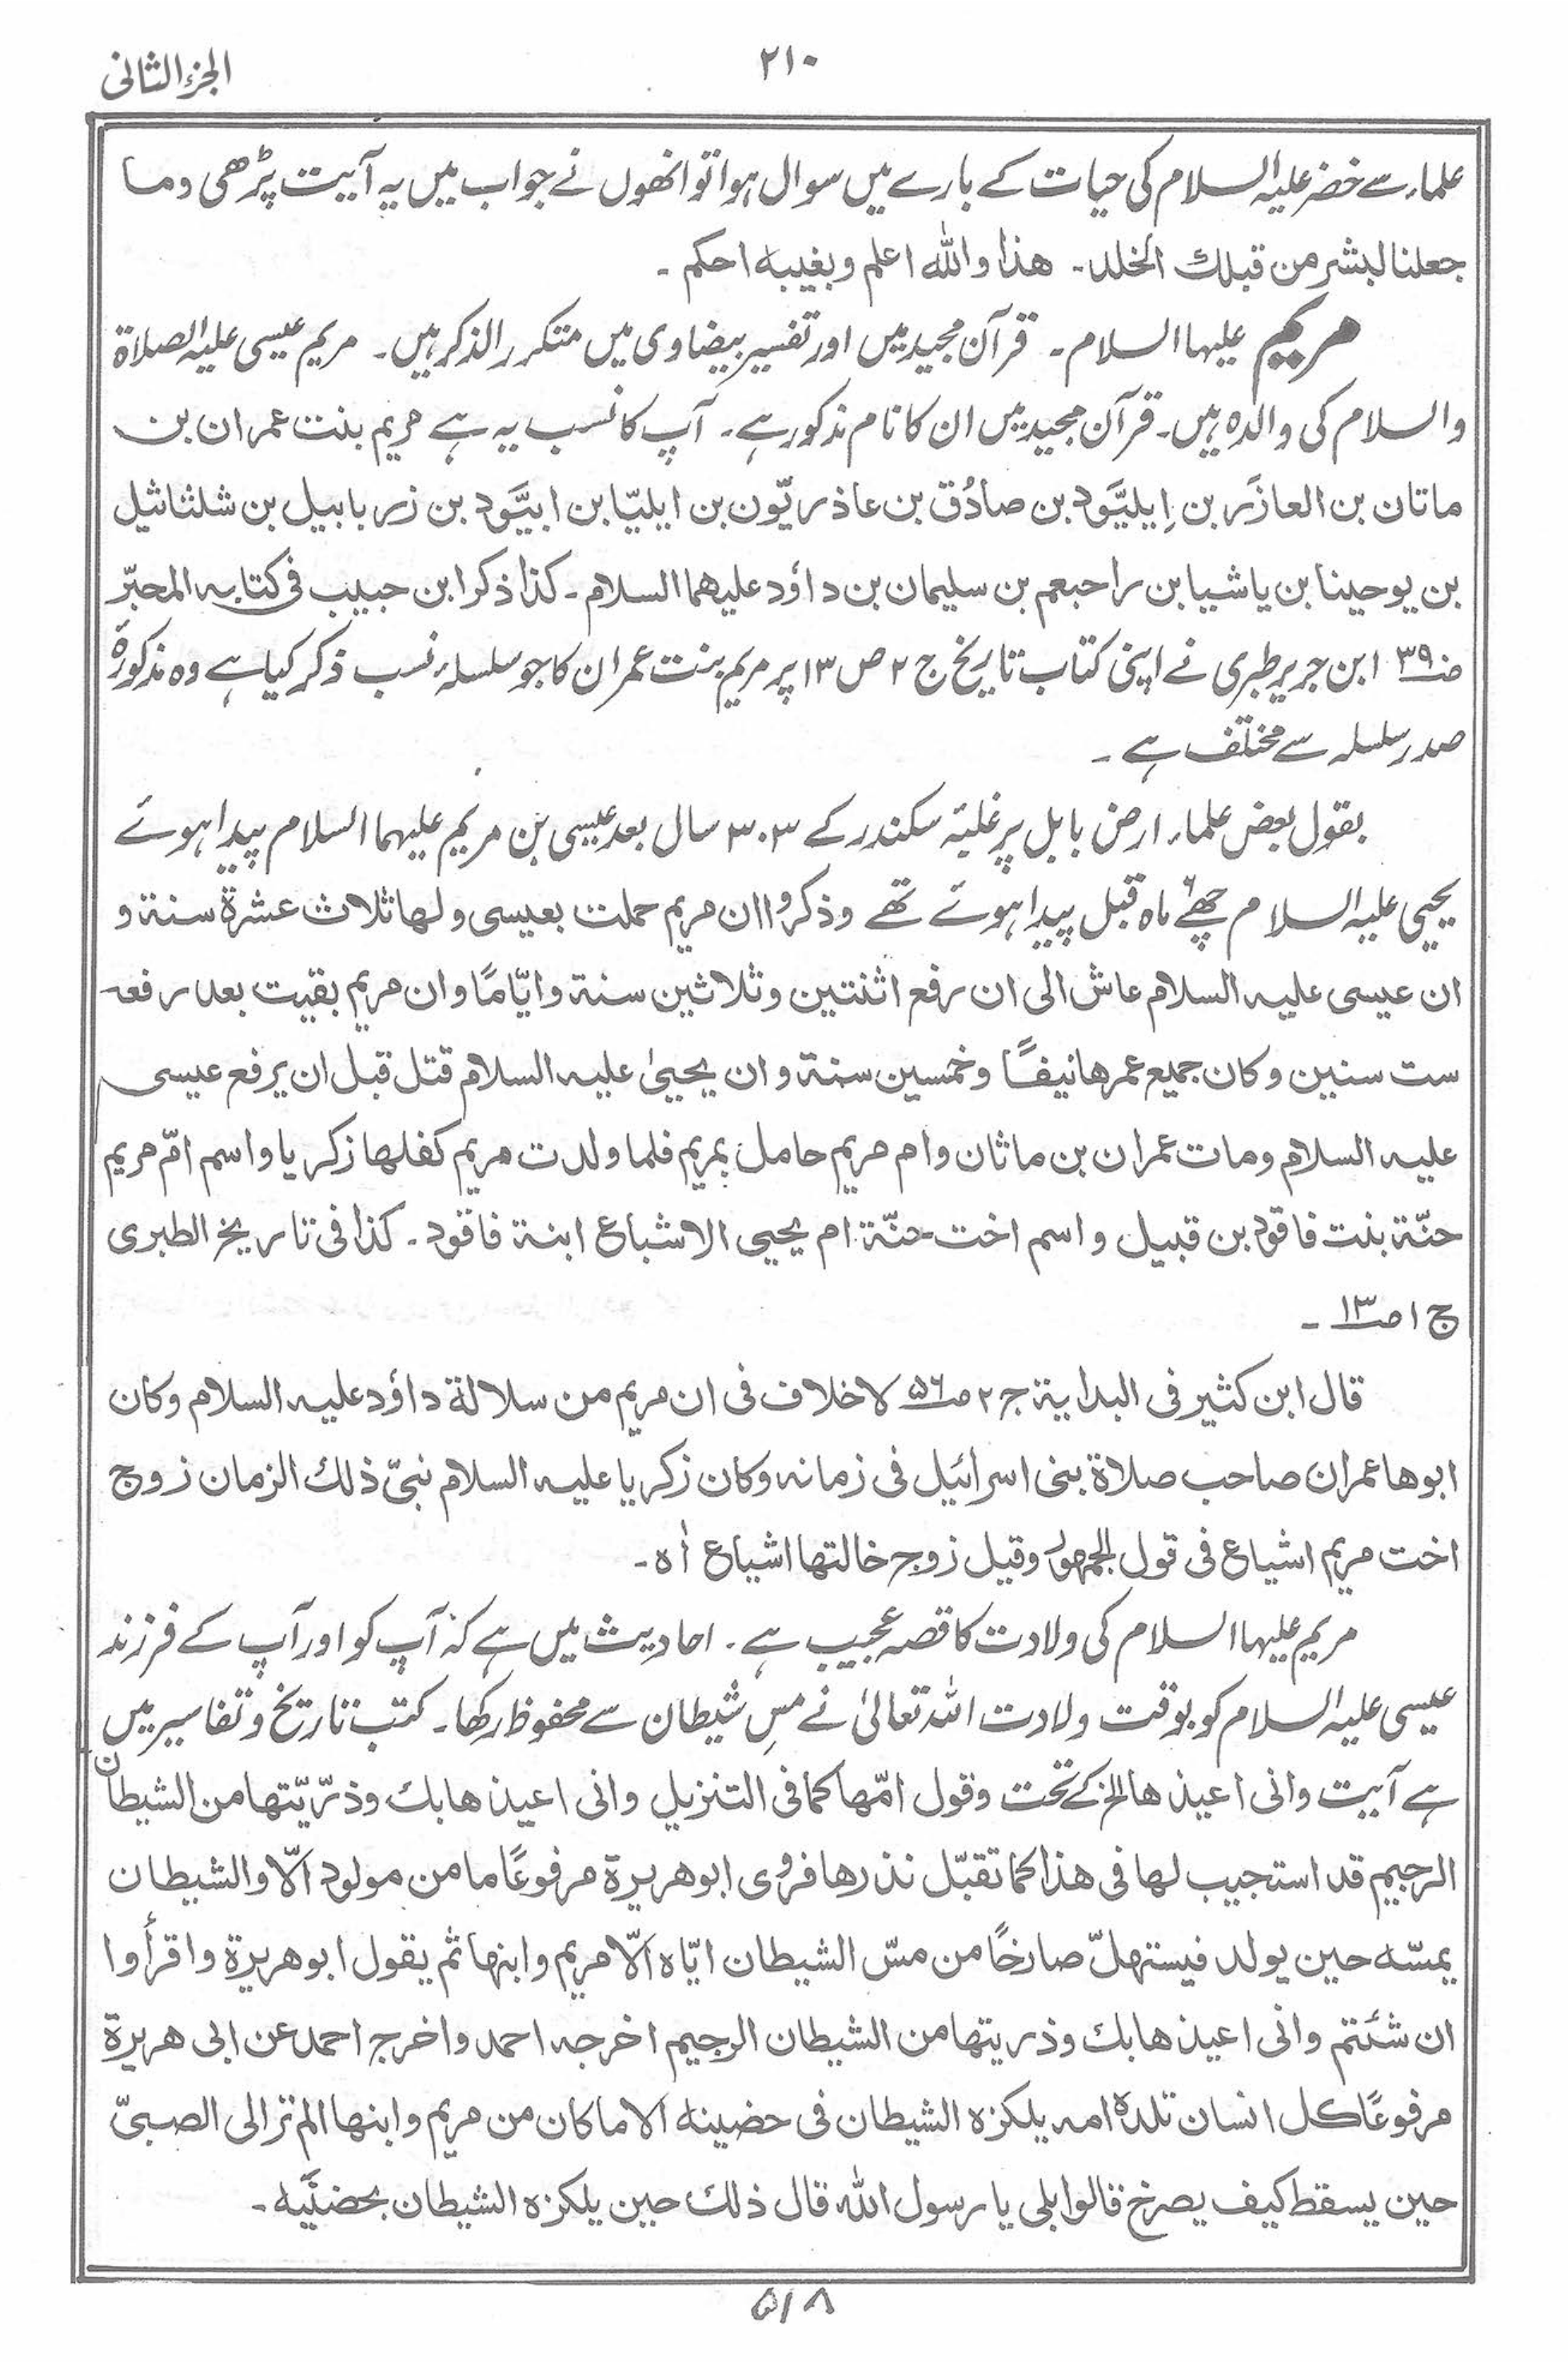 الجزء الثانی
۲۱۰
علماء سے خضر علیہ السلام کی حیات کے بارے میں سوال ہوا تو انھوں نے جواب میں یہ آیت پڑھی وما
جعلنا لبشر من قبلك الخلد۔ هذا والله اعلم وبغیبه احکم۔
مریم علیہا السلام۔ قرآن مجید میں اور تفسیر بیضاوی میں متکرر الذکر ہیں۔ مریم عیسی علیہ الصلاۃ
والسلام کی والدہ ہیں۔ قرآن مجید میں ان کا نام مذکور ہے۔ آپ کا نسب یہ ہے مریم بنت عمران بن
ماتان بن العازَر بن اِیلیَّود بن صادُق بن عاذریّون بن ایلیّا بن ابیَّود بن زربابیل بن شلثاثیل
بن یوحینا بن یاشیا بن راحبعم بن سلیمان بن داؤد علیهما السلام۔ کذا ذکر ابن حبیب فی کتابه المحبّر
صـ۳۹ ابن جریر طبری نے اپنی کتاب تاریخ ج ۲ ص ۱۳ پر مریم بنت عمران کا جو سلسلۂ نسب ذکر کیا ہے وہ مذکورہ
صدر سلسلہ سے مختلف ہے۔
بقول بعض علماء ارض بابل پر غلبۂ سکندر کے ۳۰۳ سال بعد عیسی بن مریم علیہما السلام پیدا ہوئے
یحیی علیہ السلام چھے۶ ماہ قبل پیدا ہوئے تھے وذکروا ان مریم حملت بعیسی ولها ثلاث عشرة سنة و
ان عیسی علیه السلام عاش الی ان رفع اثنتین وثلاثین سنة وایّامًا وان مریم بقیت بعد رفعه
ست سنین وکان جمیع عمرها نیفًا وخمسین سنة وان یحییٰ علیه السلام قتل قبل ان یرفع عیسی
علیه السلام ومات عمران بن ماثان وام مریم حامل بمریم فلما ولدت مریم کفلها زکریا واسم امّ مریم
حنّة بنت فاقود بن قبیل واسم اخت حنّة ام یحیی الاشباع ابنة فاقود۔ کذا فی تاریخ الطبری
ج ۱ صـ۱۳۔
قال ابن کثیر فی البدایة ج ۲ صـ۵۶ لا خلاف فی ان مریم من سلالة داؤد علیه السلام وکان
ابوها عمران صاحب صلاة بنی اسرائیل فی زمانه وکان زکریا علیه السلام نبیّ ذلك الزمان زوج
اخت مریم اشیاع فی قول الجمهور وقیل زوج خالتها اشیاع اٰه۔
مریم علیہا السلام کی ولادت کا قصہ عجیب ہے۔ احادیث میں ہے کہ آپ کو اور آپ کے فرزند
عیسی علیہ السلام کو بوقت ولادت اللہ تعالیٰ نے مسِ شیطان سے محفوظ رکھا۔ کتب تاریخ وتفاسیر میں
ہے آیت وانی اعیذها الخ کے تحت وقول امّها کما فی التنزیل وانی اعیذها بك وذرّیّتها من الشیطان
الرجیم قد استجیب لها فی هذا کما تقبّل نذرها فروی ابوهریرة مرفوعًا ما من مولود الّا والشیطان
یمسّه حین یولد فیستهلّ صارخًا من مسّ الشیطان ایّاه الّا مریم وابنها ثم یقول ابوهریرة واقرأوا
ان شئتم وانی اعیذها بك وذریتها من الشیطان الرجیم اخرجه احمد واخرج احمد عن ابی هریرة
مرفوعًا کل انسان تلده امه یلکزه الشیطان فی حضینه الا ما کان من مریم وابنها الم تر الی الصبیّ
حین یسقط کیف یصرخ قالوا بلی یا رسول الله قال ذلك حین یلکزه الشیطان بحضنَیه۔
۵۱۸